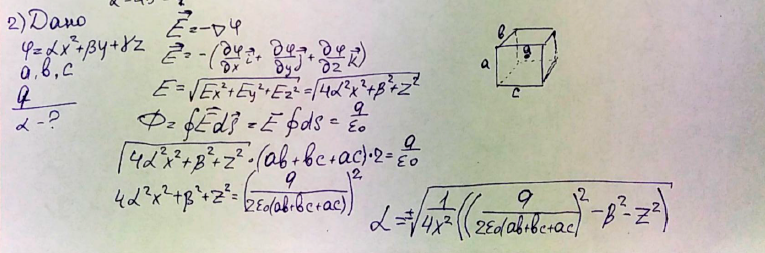 2) Дано
φ=αx²+βy+γz
a, b, c
q
α-?
E⃗=-∇φ
E⃗=-(∂φ/∂x i⃗+∂φ/∂y j⃗+∂φ/∂z k⃗)
E=√(Ex²+Ey²+Ez²)=√(4α²x²+β²+z²)
Φ=∮E⃗dS⃗=E∮dS=q/ε₀
√(4α²x²+β²+z²)·(ab+bc+ac)·2=q/ε₀
4α²x²+β²+z²=(q/2ε₀(ab+bc+ac))²
α=±√(1/4x²((q/2ε₀(ab+bc+ac))²-β²-z²))
b
a
q
c